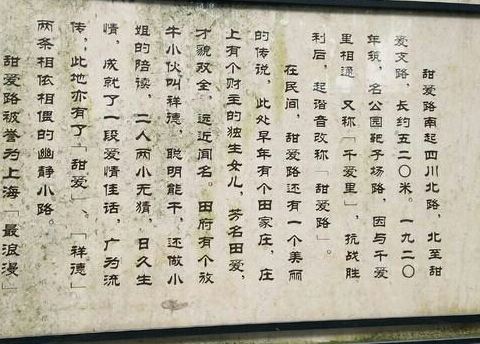 甜爱路南起四川北路，北至甜
爱支路，长约五二〇米。一九二〇
年筑，名公园靶子场路，因与千爱
里相通，又称「千爱里」，抗战胜
利后，起谐音改称「甜爱路」。
在民间，甜爱路还有一个美丽
的传说，此处早年有个田家庄，庄
上有个财主的独生女儿，芳名田爱，
才貌双全，远近闻名。田府有个放
牛小伙叫祥德，聪明能干，还做小
姐的陪读，二人两小无猜，日久生
情，成就了一段爱情佳话，广为流
传，此地亦有了「甜爱」、「祥德」
两条相依相偎的幽静小路。
甜爱路被誉为上海「最浪漫」